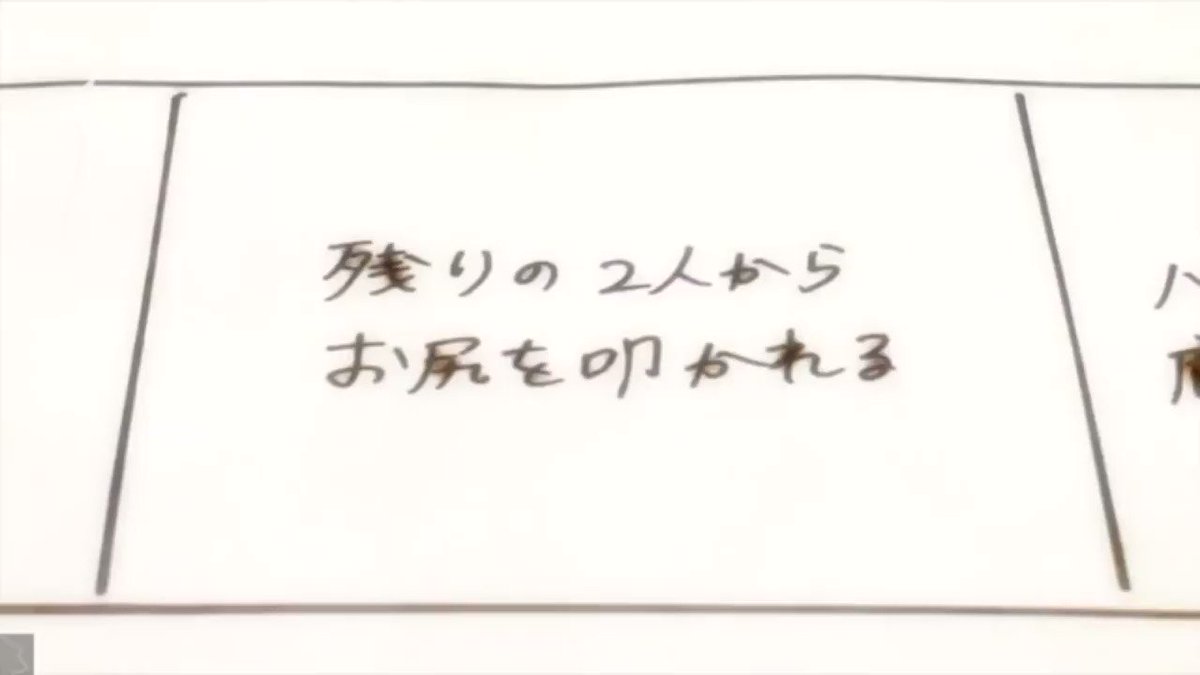 残りの2人から
お尻を叩かれる